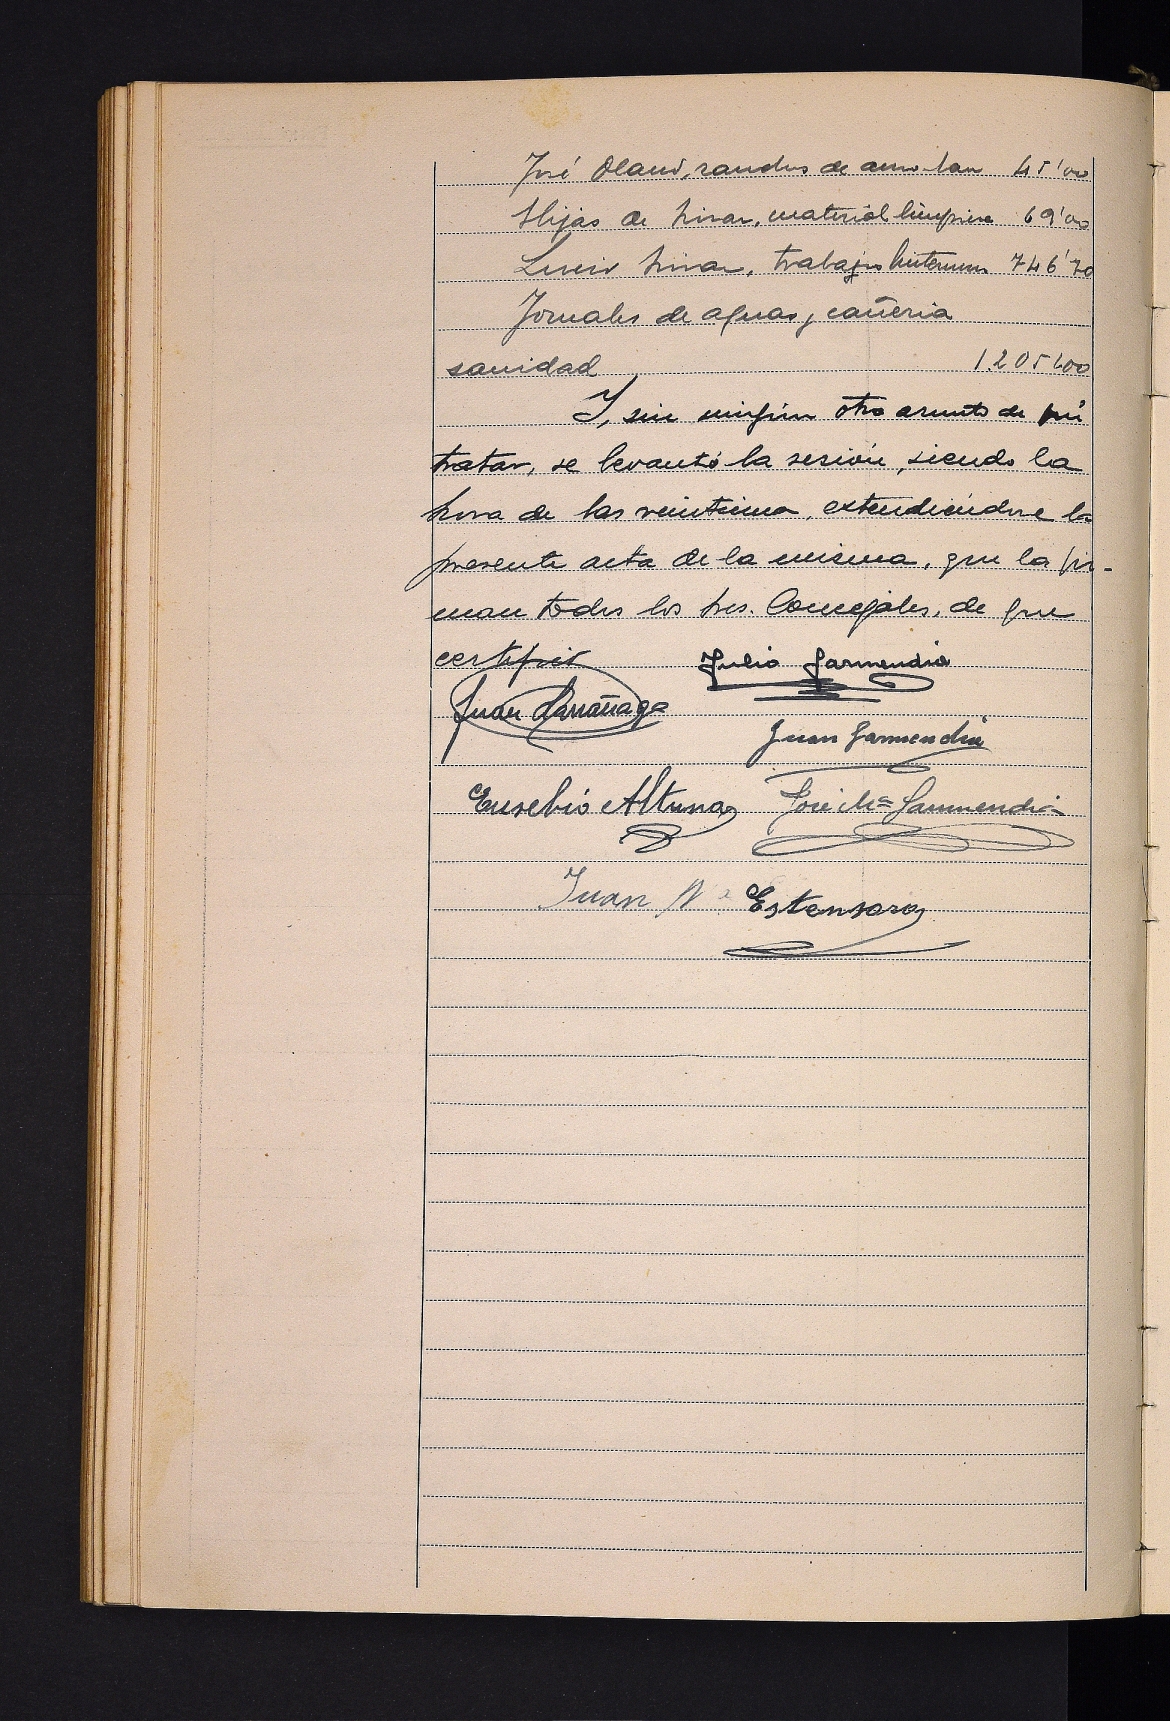 José Olano, 45'00
Hijas de material limpieza 69'00
trabajos 746'70
Jornales de aguas, cañeria
sanidad 1.205'00
Y, sin ningún otro asunto de que
tratar, se levantó la sesión, siendo la
hora de las veintiuna, extendiéndose la
presente acta de la misma, que la fir-
man todos los Sres. Concejales, de que
certifico
Julio Garmendia
Juan Larrañaga
Juan Garmendia
Eusebio Altuna José Mª Garmendia
Juan Mª Estensoro